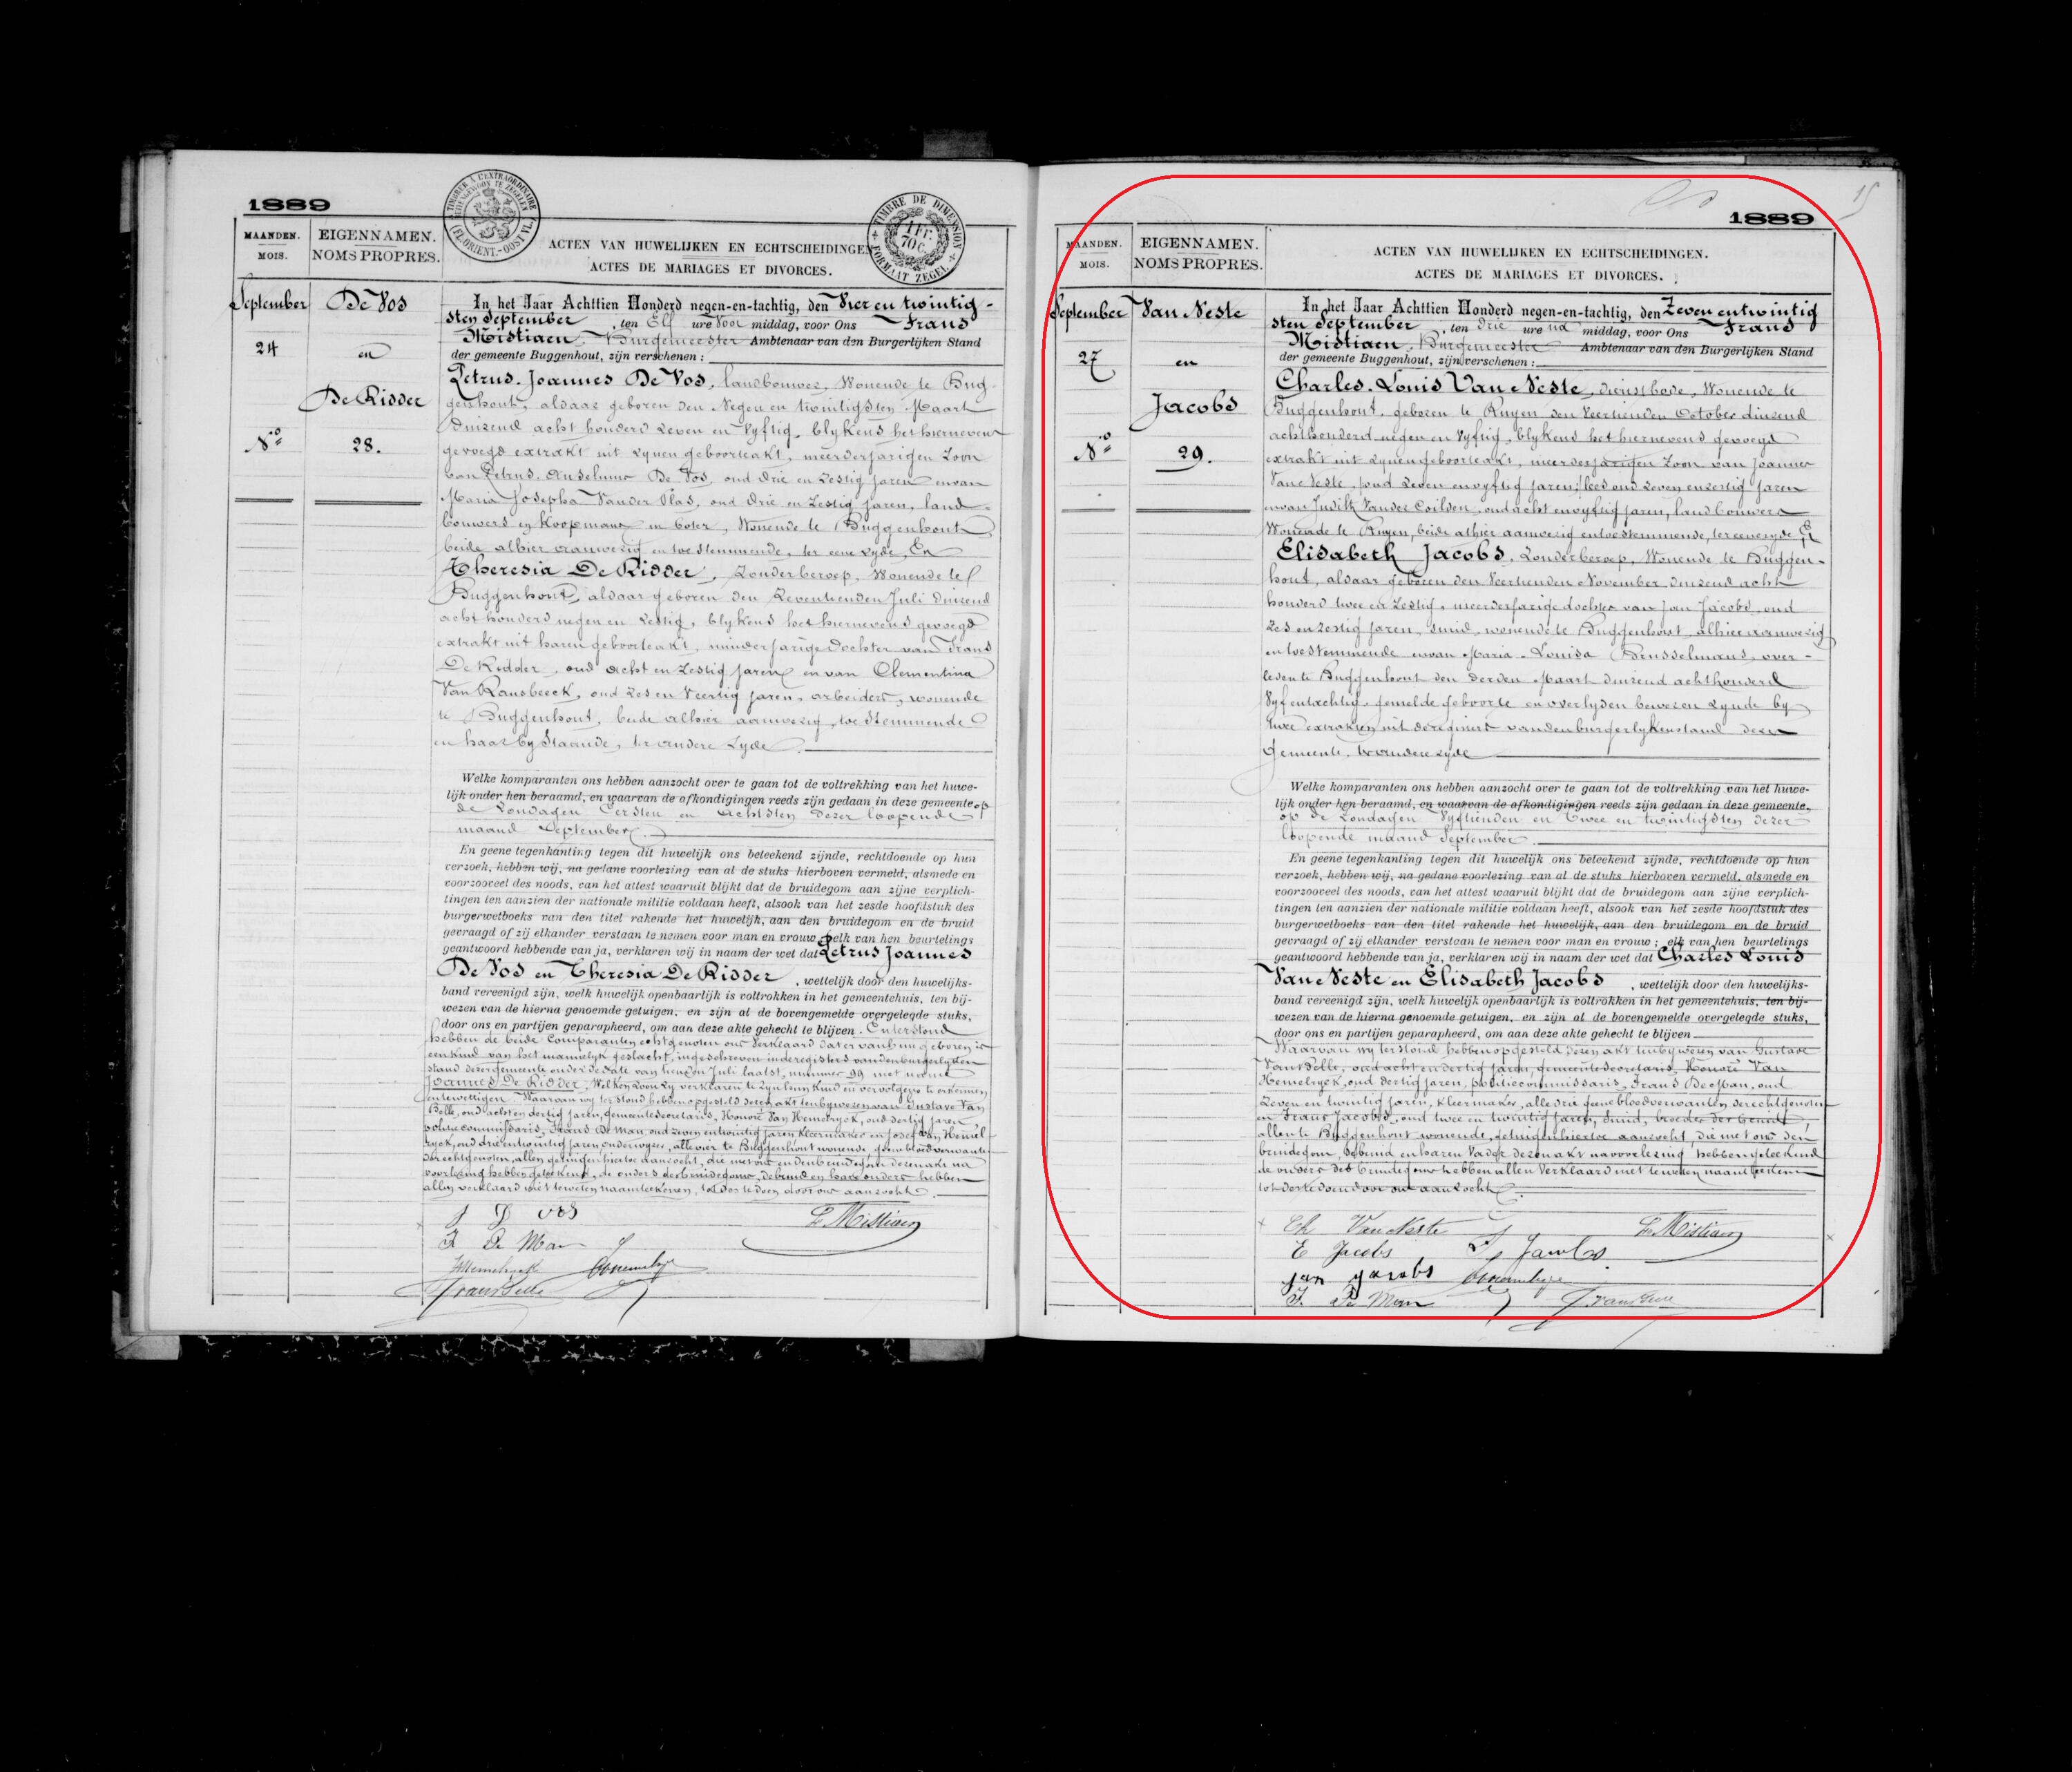 1889
MAANDEN.
MOIS.
EIGENNAMEN.
NOMS PROPRES.
TIMBRE A L'EXTRAORDINAIRE
(FL. ORIENT.-OOST VL.)
TIMBRE DE DIMENSION
1 Fr.
70 C.
FORMAAT ZEGEL
ACTEN VAN HUWELIJKEN EN ECHTSCHEIDINGEN
ACTES DE MARIAGES ET DIVORCES.
September
24
No
De Vos
en
De Ridder
28.
In het Jaar Achttien Honderd negen-en-tachtig, den Vier en twintig-
sten September, ten Elf ure Voor middag, voor Ons Frans
Mistiaen, Burgemeester Ambtenaar van den Burgerlijken Stand
der gemeente Buggenhout, zijn verschenen:
Petrus Joannes De Vos, landbouwer, Wonende te Bug-
genhout, aldaar geboren den Negen en twintigsten Maart
duizend acht honderd zeven en Vyftig, blykens het hiernevens
gevoegd extrakt uit zynen geboorteakt, meerderjarigen Zoon
van Petrus Anselmus De Vos, oud drie en Zestig jaren en van
Maria Josepha Vander Vlas, oud drie en Zestig jaren, land-
bouwers en Koopmans in boter, Wonende te Buggenhout
beide alhier aanwezig en toestemmende, ter eene zyde, En
Theresia De Ridder, Zonder beroep, Wonende te
Buggenhout, aldaar geboren den Zeventienden Juli duizend
acht honderd negen en zestig, blykens het hiernevens gevoegd
extrakt uit haren geboorteakt, minderjarige Dochter van Frans
De Ridder, oud acht en Zestig jaren en van Clementina
Van Ransbeeck, oud zes en Veertig jaren, arbeiders, wonende
te Buggenhout, beide alhier aanwezig, toestemmende
en haar bystaande, ter andere Zyde.
Welke komparanten ons hebben aanzocht over te gaan tot de voltrekking van het huwe-
lijk onder hen beraamd, en waarvan de afkondigingen reeds zijn gedaan in deze gemeente op
de Zondagen Eersten en Achtsten dezer loopende
maand September.
En geene tegenkanting tegen dit huwelijk ons beteekend zijnde, rechtdoende op hun
verzoek, hebben wij, na gedane voorlezing van al de stuks hierboven vermeld, alsmede en
voorzooveel des noods, van het attest waaruit blijkt dat de bruidegom aan zijne verplich-
tingen ten aanzien der nationale militie voldaan heeft, alsook van het zesde hoofdstuk des
burgerwetboeks van den titel rakende het huwelijk, aan den bruidegom en de bruid
gevraagd of zij elkander verstaan te nemen voor man en vrouw; elk van hen beurtelings
geantwoord hebbende van ja, verklaren wij in naam der wet dat Petrus Joannes
De Vos en Theresia De Ridder, wettelijk door den huwelijks-
band vereenigd zijn, welk huwelijk openbaarlijk is voltrokken in het gemeentehuis, ten bij-
wezen van de hierna genoemde getuigen, en zijn al de bovengemelde overgelegde stuks,
door ons en partijen geparapheerd, om aan deze akte gehecht te blijven. Enterstond
hebben de beide Comparanten echtgenoten ons Verklaard dat er van hun geboren is
een kind van het mannelyk geslacht, ingeschreven in de registers van den burgerlyken
stand dezer gemeente onder de date van Juli laatst, nummer 99 met name
Joannes De Ridder, Welken Zoon zy verklaren te zyn hun Kind en vervolgens te erkennen
en te wettigen. Waarvan wy terstond hebben opgesteld dezen akt ten bywezen van Gustave Van
Belle, oud acht en dertig jaren, gemeentesecretaris, Honoré Van Hemelryck, oud dertig jaren
politiecommissaris, Frans De Man oud zeven en twintig jaren Kleermaker en Josef Van Hemel-
ryck, oud drie en twintig jaren onderwyzer, alle vier te Buggenhout wonende, geen bloedverwanten
der echtgenoten, allen getuigen hiertoe aanzocht, die met ons en den bruidegom dezen akt na
voorlezing hebben geteekend, de ouders des bruidegoms, de bruid en hare ouders hebben
allen verklaard niet te weten naamteekenen, tot des te doen door ons aanzocht.
J D Vos
F. Mistiaen
F De Man
JHemelryck
GVanBelle
15
1889
MAANDEN.
MOIS.
EIGENNAMEN.
NOMS PROPRES.
ACTEN VAN HUWELIJKEN EN ECHTSCHEIDINGEN.
ACTES DE MARIAGES ET DIVORCES.
September
27
No
Van Neste
en
Jacobs
29.
In het Jaar Achttien Honderd negen-en-tachtig, den Zeven en twintig
sten September, ten drie ure na middag, voor Ons Frans
Mistiaen, Burgemeester Ambtenaar van den Burgerlijken Stand
der gemeente Buggenhout, zijn verschenen:
Charles Louis Van Neste, dienstbode, Wonende te
Buggenhout, geboren te Ruyen den Veertienden October duizend
achthonderd negen en Vyftig, blykens het hiernevens gevoegd
extrakt uit zynen geboorteakt, meerderjarigen Zoon van Joannes
Van Neste, oud zeven en vyftig jaren, lees oud zeven en zestig jaren
en van Judith Vander Coilden, oud acht en vyftig jaren, landbouwers
Wonende te Ruyen, beide alhier aanwezig en toestemmende, ter eene zyde En
Elisabeth Jacobs, Zonder beroep, Wonende te Buggen-
hout, aldaar geboren den Veertienden November duizend acht
honderd twee en Zestig, meerderjarige dochter van Jan Jacobs, oud
zes en zestig jaren, smid, wonende te Buggenhout alhier aanwezig
en toestemmende en van Maria Louisa Brusselmans, over-
leden te Buggenhout den derden Maart duizend achthonderd
Vyf en tachtig, gemelde geboorte en overlyden bewezen zynde by
twee extrakten uit de registers van den burgerlyken stand dezer
Gemeente, ter andere zyde
Welke komparanten ons hebben aanzocht over te gaan tot de voltrekking van het huwe-
lijk onder hen beraamd, en waarvan de afkondigingen reeds zijn gedaan in deze gemeente,
op de Zondagen Vyftienden en Twee en twintigsten dezer
loopende maand September.
En geene tegenkanting tegen dit huwelijk ons beteekend zijnde, rechtdoende op hun
verzoek, hebben wij, na gedane voorlezing van al de stuks hierboven vermeld, alsmede en
voorzooveel des noods, van het attest waaruit blijkt dat de bruidegom aan zijne verplich-
tingen ten aanzien der nationale militie voldaan heeft, alsook van het zesde hoofdstuk des
burgerwetboeks van den titel rakende het huwelijk, aan den bruidegom en de bruid
gevraagd of zij elkander verstaan te nemen voor man en vrouw; elk van hen beurtelings
geantwoord hebbende van ja, verklaren wij in naam der wet dat Charles Louis
Van Neste en Elisabeth Jacobs, wettelijk door den huwelijks-
band vereenigd zijn, welk huwelijk openbaarlijk is voltrokken in het gemeentehuis, ten bij-
wezen van de hierna genoemde getuigen, en zijn al de bovengemelde overgelegde stuks,
door ons en partijen geparapheerd, om aan deze akte gehecht te blijven
Waarvan wy terstond hebben opgesteld dezen akt ten bywezen van Gustave
Van Belle, oud acht en dertig jaren, gemeentesecretaris, Honoré Van
Hemelryck, oud dertig jaren, politiecommissaris, Frans De Man, oud
Zeven en twintig jaren, Kleermaker, alle drie geene bloedverwanten der echtgenoten
en Frans Jacobs, oud twee en twintig jaren, smid, broeder der bruid,
allen te Buggenhout wonende, getuigen hiertoe aanzocht, die met ons den
bruidegom, de bruid en haren Vader dezen akt na voorlezing hebben geteekend
de ouders des bruidegoms hebben allen Verklaard niet te weten naamteekenen
tot des te doen door ons aanzocht.
Ch Van Neste
F. Mistiaen
E Jacobs
F. Jacobs
jan jacobs
F. De Man
GVanBelle